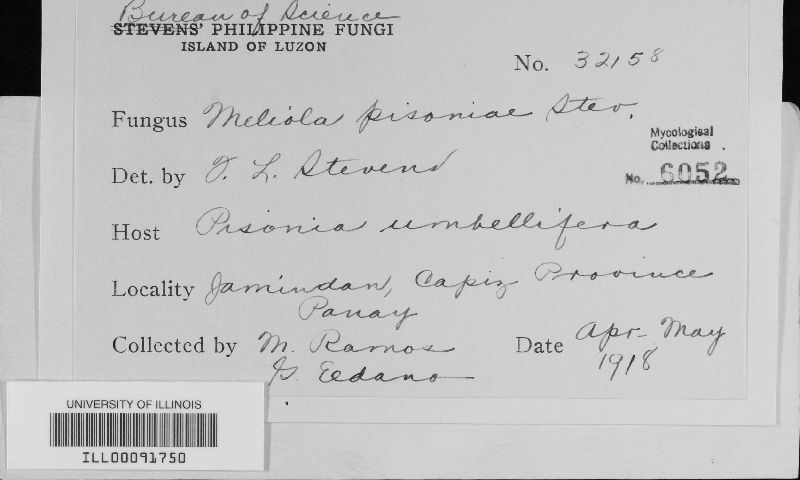 Bureau of Science
STEVENS' PHILIPPINE FUNGI
ISLAND OF LUZON
No. 32158
Fungus Meliola pisoniae Stev.
Mycological
Collections
No. 6052
Det. by F. L. Stevens
Host Pisonia umbellifera
Locality Jamindan, Capiz Province
Panay
Collected by M. Ramos
G. Eedano
Date Apr-May
1918
UNIVERSITY OF ILLINOIS
ILL00091750